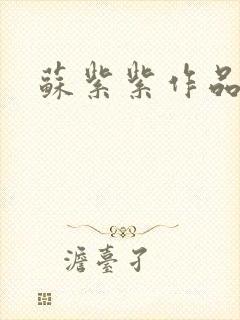 蘇紫紫作品
澹臺孑